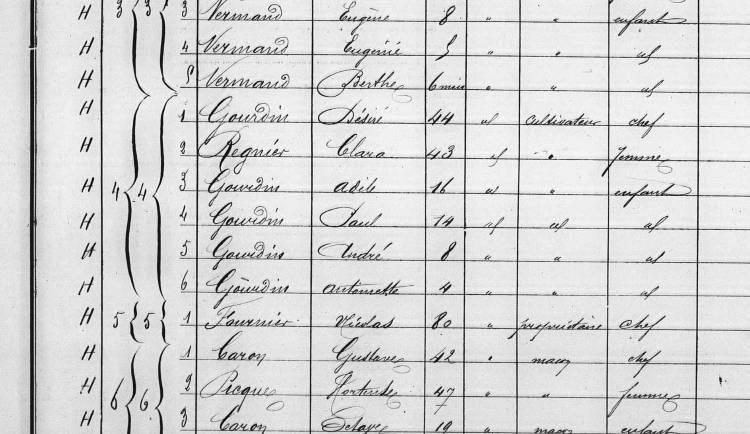 H 3 3 3 Vermand Eugène 8 " " enfant
H 4 Vermand Eugénie 5 " " id
H 5 Vermand Berthe 6 mois " " id
H 1 Gourdin Désiré 44 id cultivateur chef
H 2 Regnier Clara 43 id " femme
H 4 4 3 Gourdin Adèle 16 id " enfant
H 4 Gourdin Paul 14 id id id
H 5 Gourdin André 8 " " id
H 6 Gourdin Antoinette 4 " " id
H 5 5 1 Fournier Nicolas 80 " propriétaire chef
H 1 Caron Gustave 42 " maçon chef
H 6 6 2 Picque Hortense 47 " " femme
H 3 Caron Octave 19 " maçon enfant